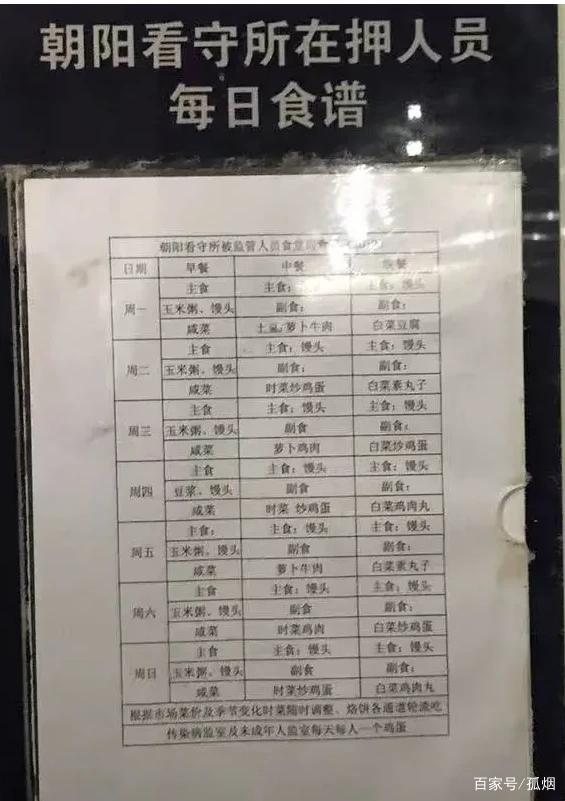 朝阳看守所在押人员
每日食谱
朝阳看守所被监管人员食堂
日期 早餐 中餐 晚餐
周一 主食 主食: 主食:馒头
玉米粥、馒头 副食: 副食:
咸菜 土豆萝卜牛肉 白菜豆腐
周二 主食 主食:馒头 主食:馒头
玉米粥、馒头 副食: 副食:
咸菜 时菜炒鸡蛋 白菜素丸子
周三 主食 主食:馒头 主食:馒头
玉米粥、馒头 副食 副食:
咸菜 萝卜鸡肉 白菜炒鸡蛋
周四 主食 主食:馒头 主食:馒头
豆浆、馒头 副食 副食:
咸菜 时菜 炒鸡蛋 白菜鸡肉丸
周五 主食: 主食:馒头 主食:馒头
玉米粥、馒头 副食 副食:
咸菜 萝卜牛肉 白菜素丸子
周六 主食 主食:馒头 主食:馒头
玉米粥、馒头 副食 副食:
咸菜 时菜鸡肉 白菜炒鸡蛋
周日 主食 主食:馒头 主食:馒头
玉米粥、馒头 副食 副食:
咸菜 时菜炒鸡蛋 白菜鸡肉丸
根据市场菜价及季节变化时菜随时调整、烙饼各通道轮流吃
传染病监室及未成年人监室每天每人一个鸡蛋
百家号/孤烟